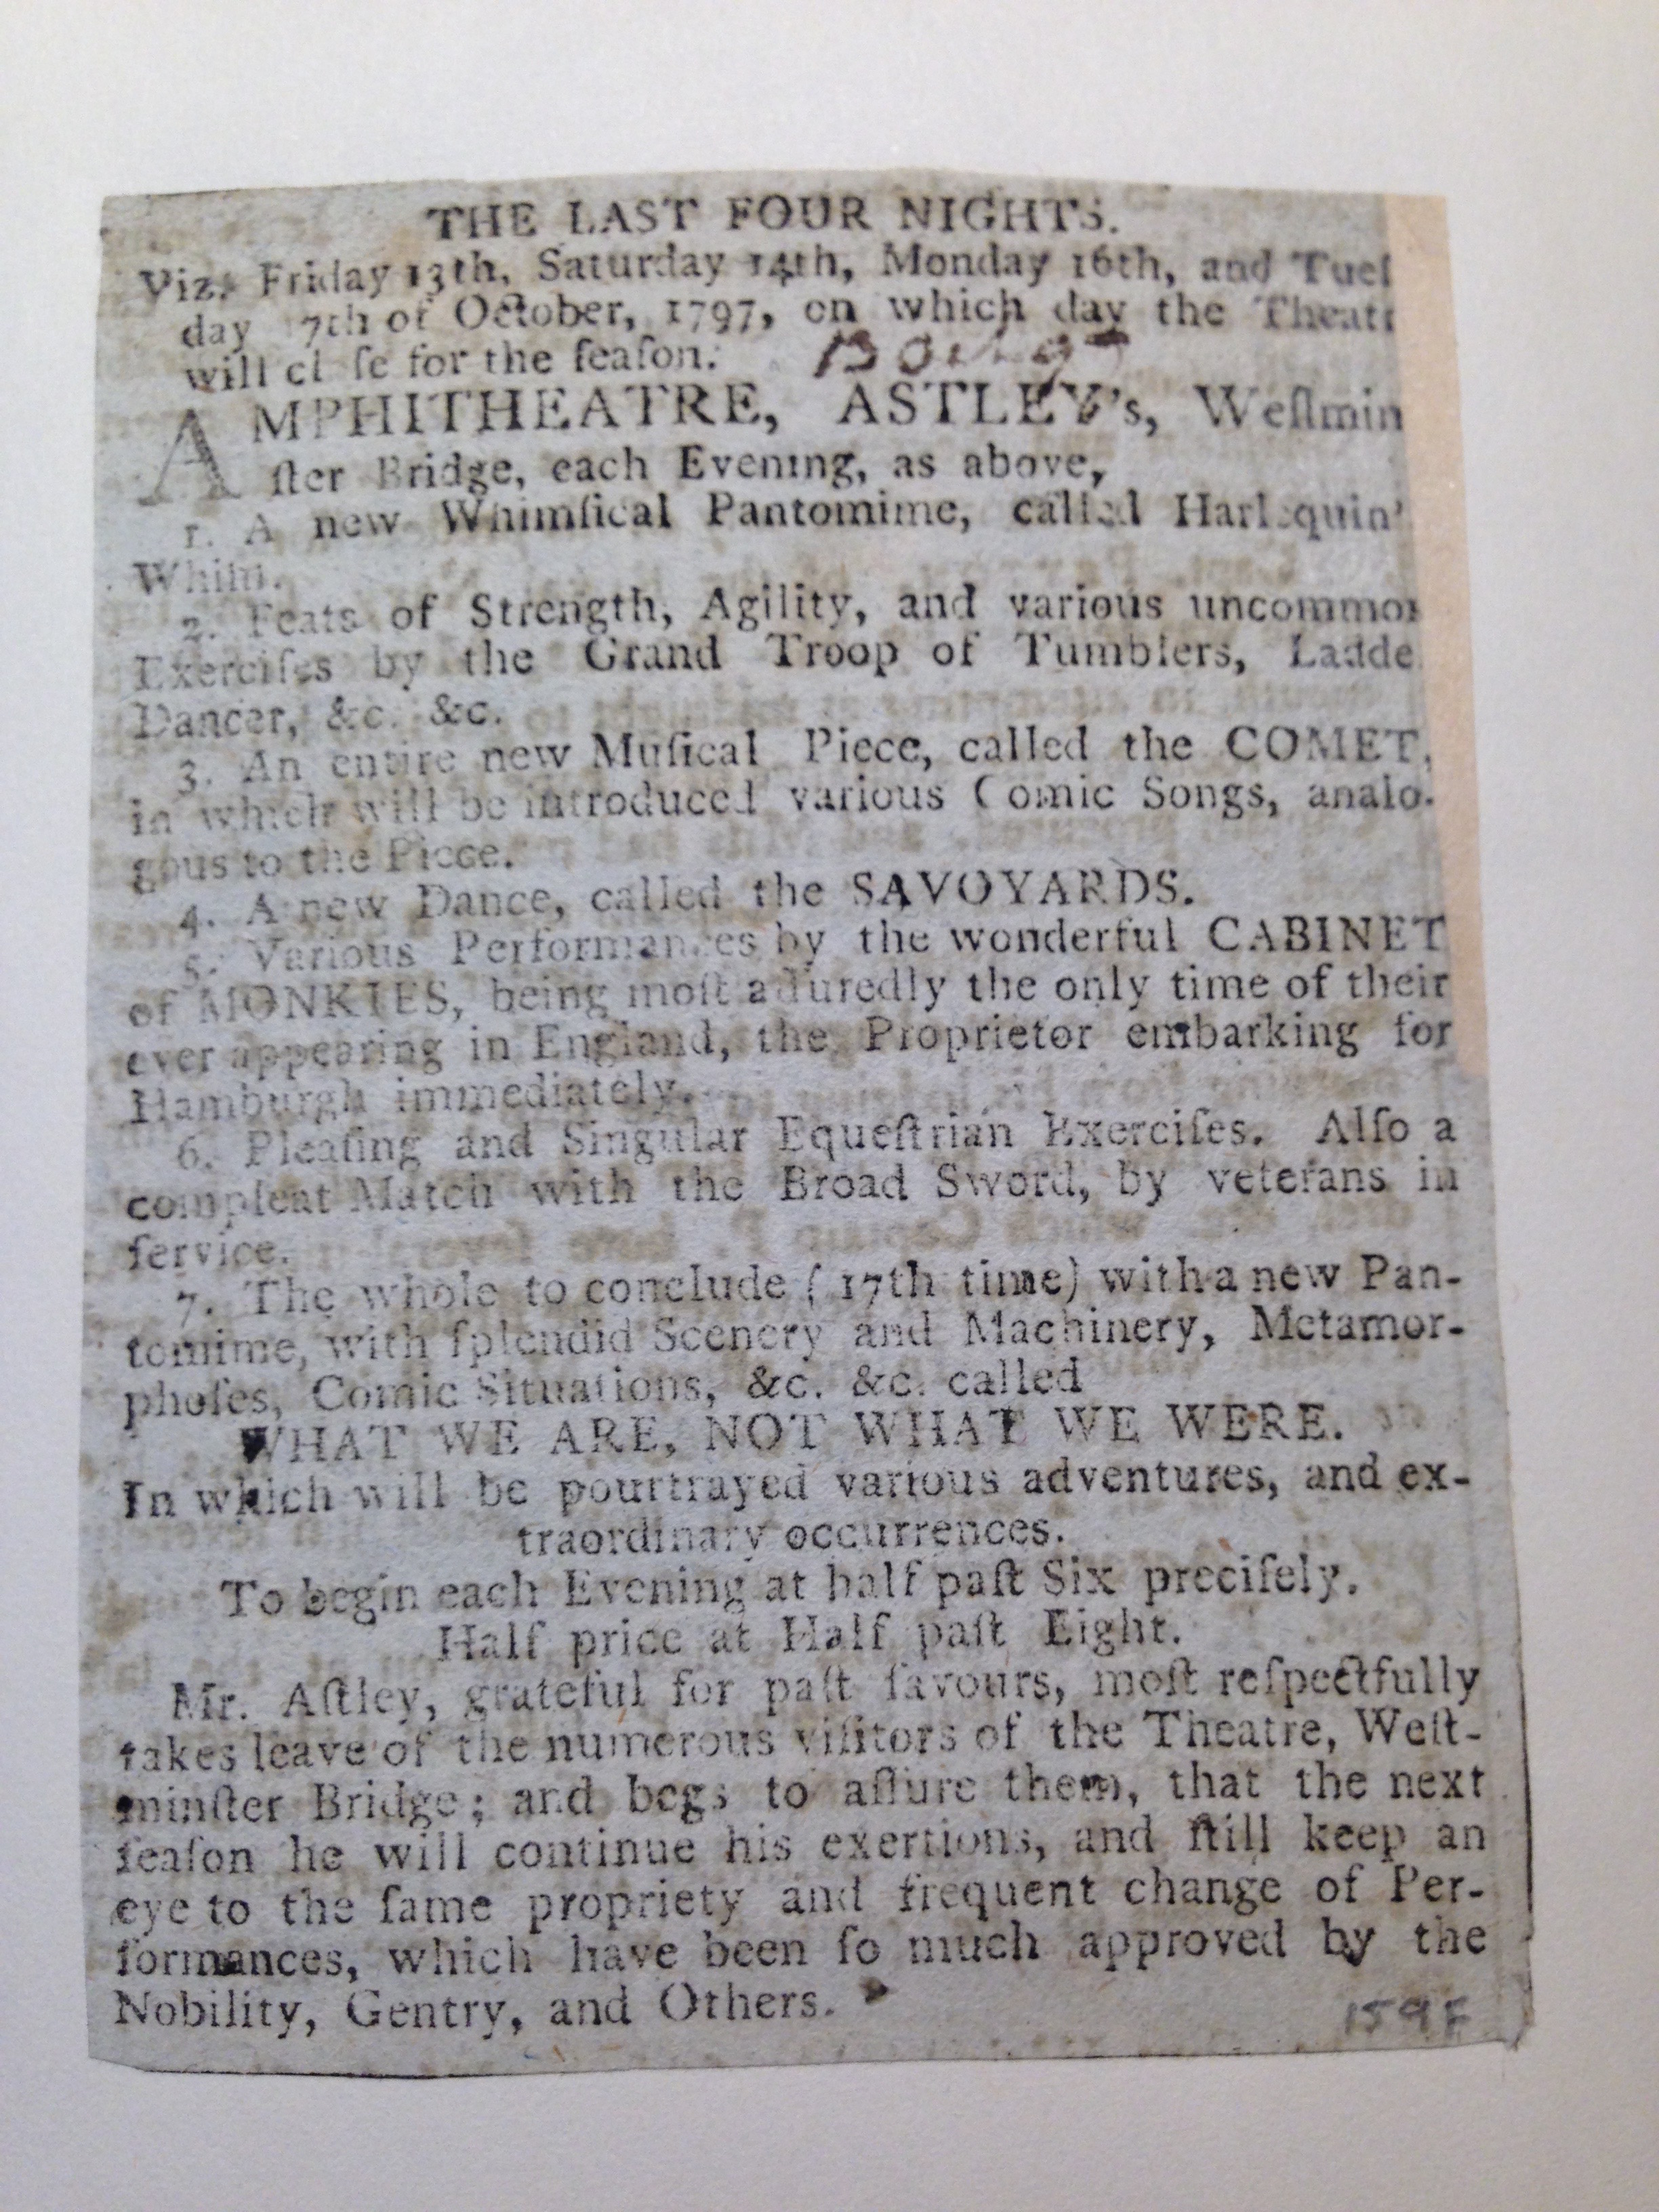 THE LAST FOUR NIGHTS.
Viz. Friday 13th, Saturday 14th, Monday 16th, and Tueſ
day 7th of October, 1797, on which day the Theatr
will cl ſe for the ſeaſon.
AMPHITHEATRE, ASTLEY's, Weſtmin
ſter Bridge, each Evening, as above,
1. A new Whimſical Pantomime, called Harlequin'
Whim.
2. Feats of Strength, Agility, and various uncommon
Exerciſes by the Grand Troop of Tumblers, Ladde
Dancer, &c. &c.
3. An entire new Muſical Piece, called the COMET,
in which will be introduced various Comic Songs, analo-
gous to the Piece.
4. A new Dance, called the SAVOYARDS.
5. Various Performances by the wonderful CABINET
of MONKIES, being moſt aſſuredly the only time of their
ever appearing in England, the Proprietor embarking for
Hamburgh immediately.
6. Pleaſing and Singular Equeſtrian Exerciſes. Alſo a
compleat Match with the Broad Sword, by veterans in
ſervice.
7. The whole to conclude (17th time) with a new Pan-
tomime, with ſplendid Scenery and Machinery, Metamor-
phoſes, Comic Situations, &c. &c. called
WHAT WE ARE, NOT WHAT WE WERE.
In which will be pourtrayed various adventures, and ex-
traordinary occurrences.
To begin each Evening at half paſt Six preciſely.
Half price at Half paſt Eight.
Mr. Aſtley, grateful for paſt favours, moſt reſpectfully
takes leave of the numerous viſitors of the Theatre, Weſt-
minſter Bridge; and begs to aſſure them, that the next
ſeaſon he will continue his exertions, and ſtill keep an
eye to the ſame propriety and frequent change of Per-
formances, which have been ſo much approved by the
Nobility, Gentry, and Others.
159F